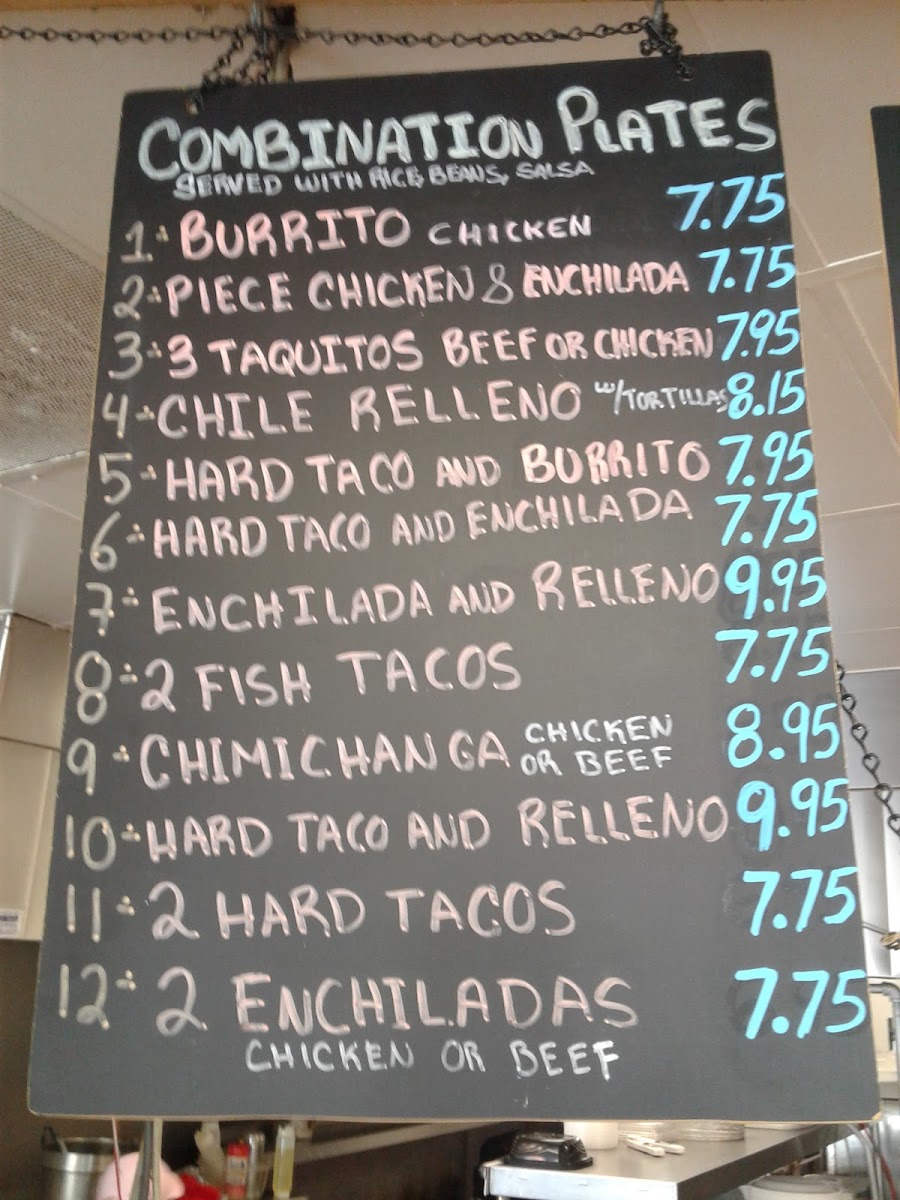 COMBINATION PLATES
SERVED WITH RICE, BEANS, SALSA
1 BURRITO CHICKEN 7.75
2 PIECE CHICKEN & ENCHILADA 7.75
3 3 TAQUITOS BEEF OR CHICKEN 7.95
4 CHILE RELLENO W/TORTILLAS 8.15
5 HARD TACO AND BURRITO 7.95
6 HARD TACO AND ENCHILADA 7.75
7 ENCHILADA AND RELLENO 9.95
8 2 FISH TACOS 7.75
9 CHIMICHANGA CHICKEN OR BEEF 8.95
10 HARD TACO AND RELLENO 9.95
11 2 HARD TACOS 7.75
12 2 ENCHILADAS 7.75
CHICKEN OR BEEF